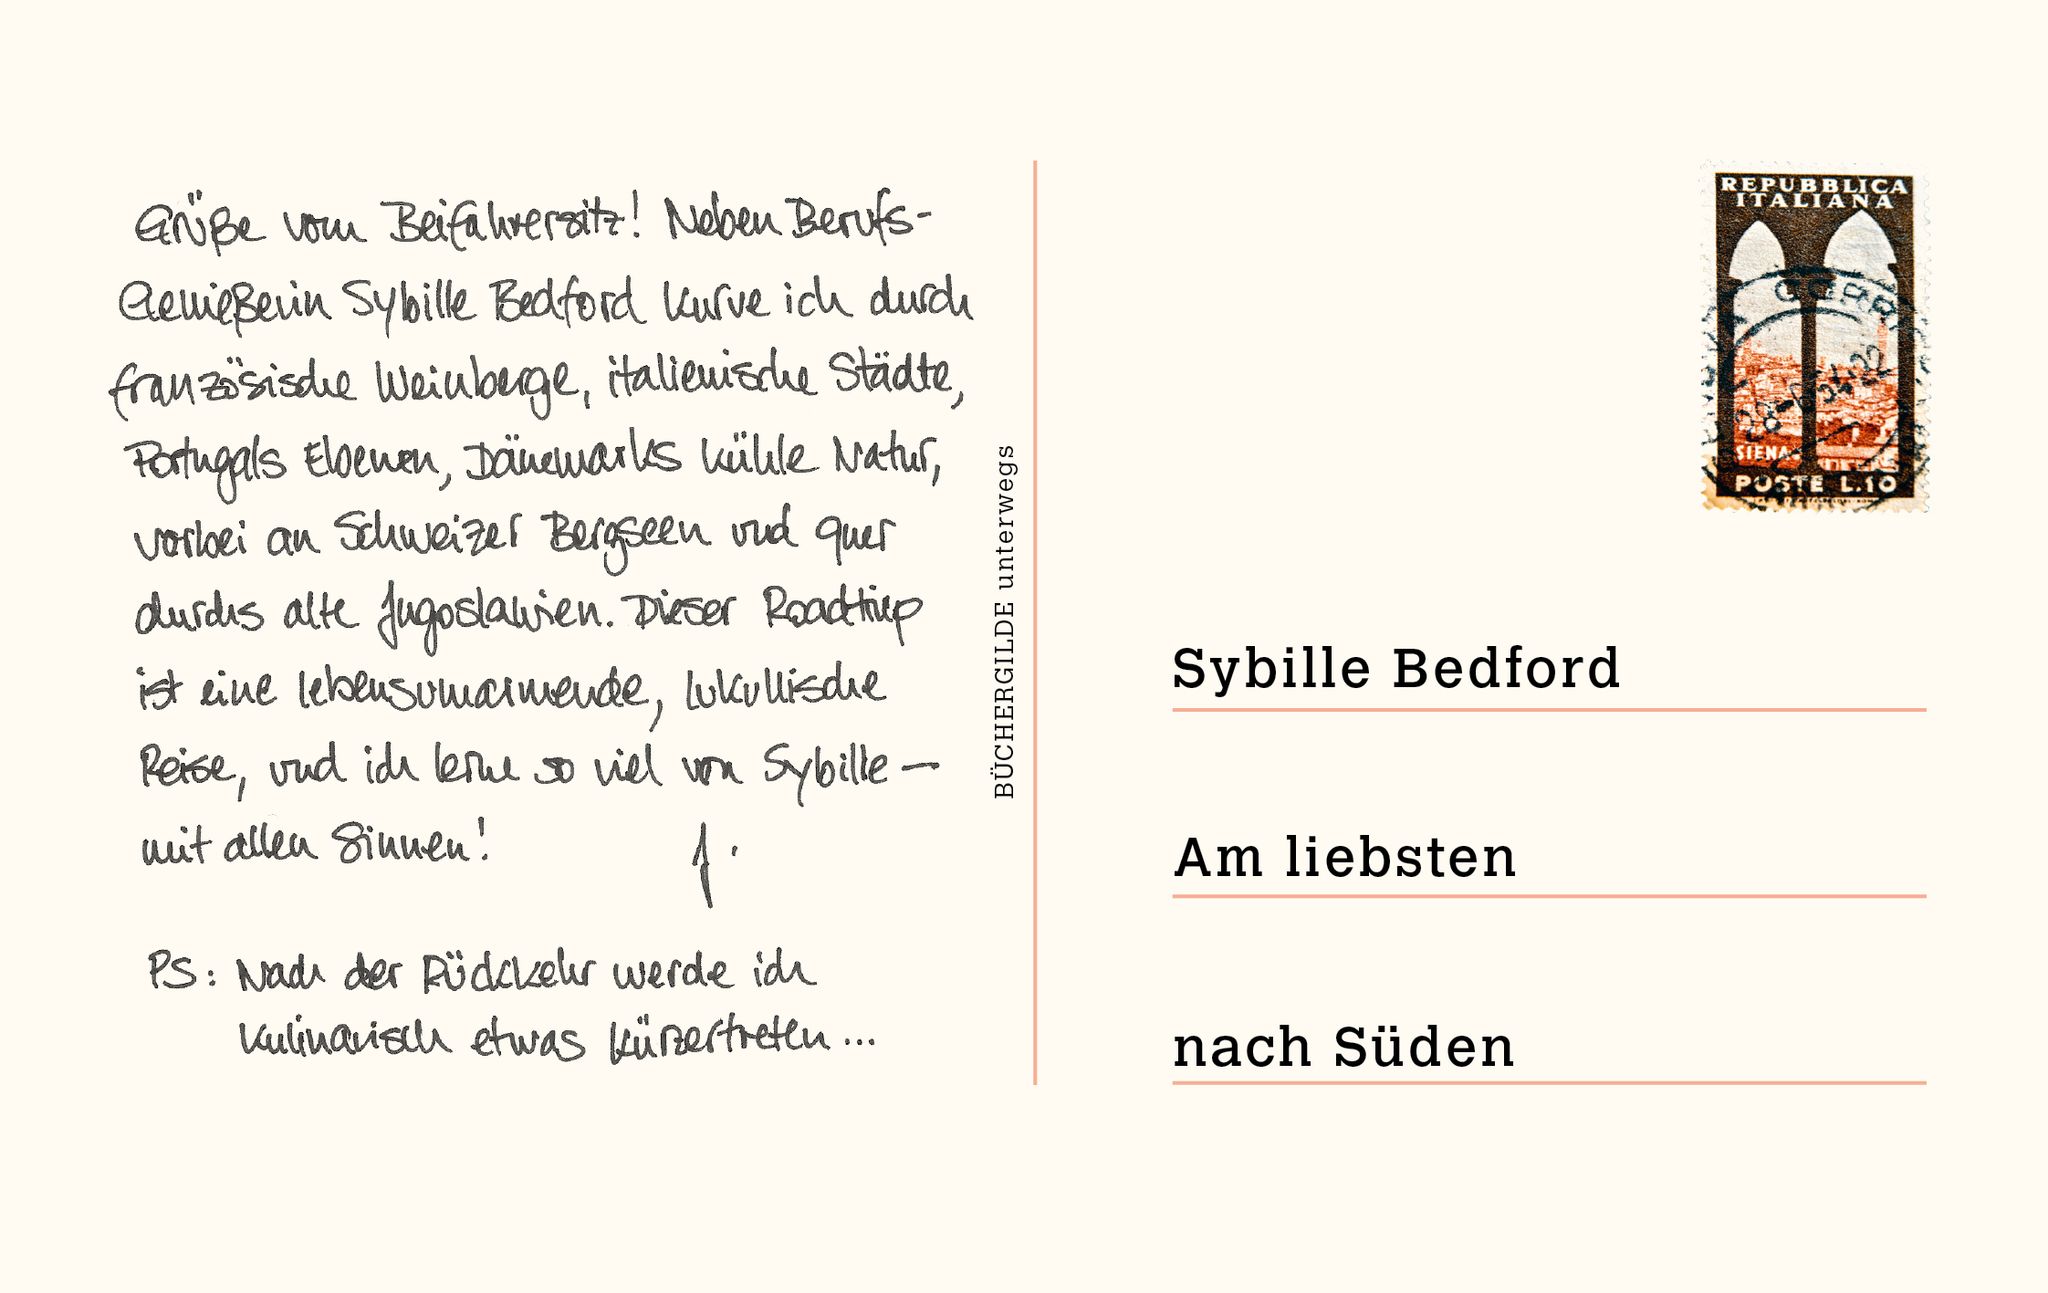 Grüße vom Beifahrersitz! Neben Berufs-
Genießerin Sybille Bedford kurve ich durch
französische Weinberge, italienische Städte,
Portugals Ebenen, Dänemarks kühle Natur,
vorbei an Schweizer Bergseen und quer
durchs alte Jugoslawien. Dieser Roadtrip
ist eine lebensumarmende, lukullische
Reise, und ich lerne so viel von Sybille –
mit allen Sinnen!
J.
PS: Nach der Rückkehr werde ich
kulinarisch etwas kürzertreten...
BÜCHERGILDE unterwegs
REPUBBLICA
ITALIANA
SIENA
POSTE L.10
Sybille Bedford
Am liebsten
nach Süden